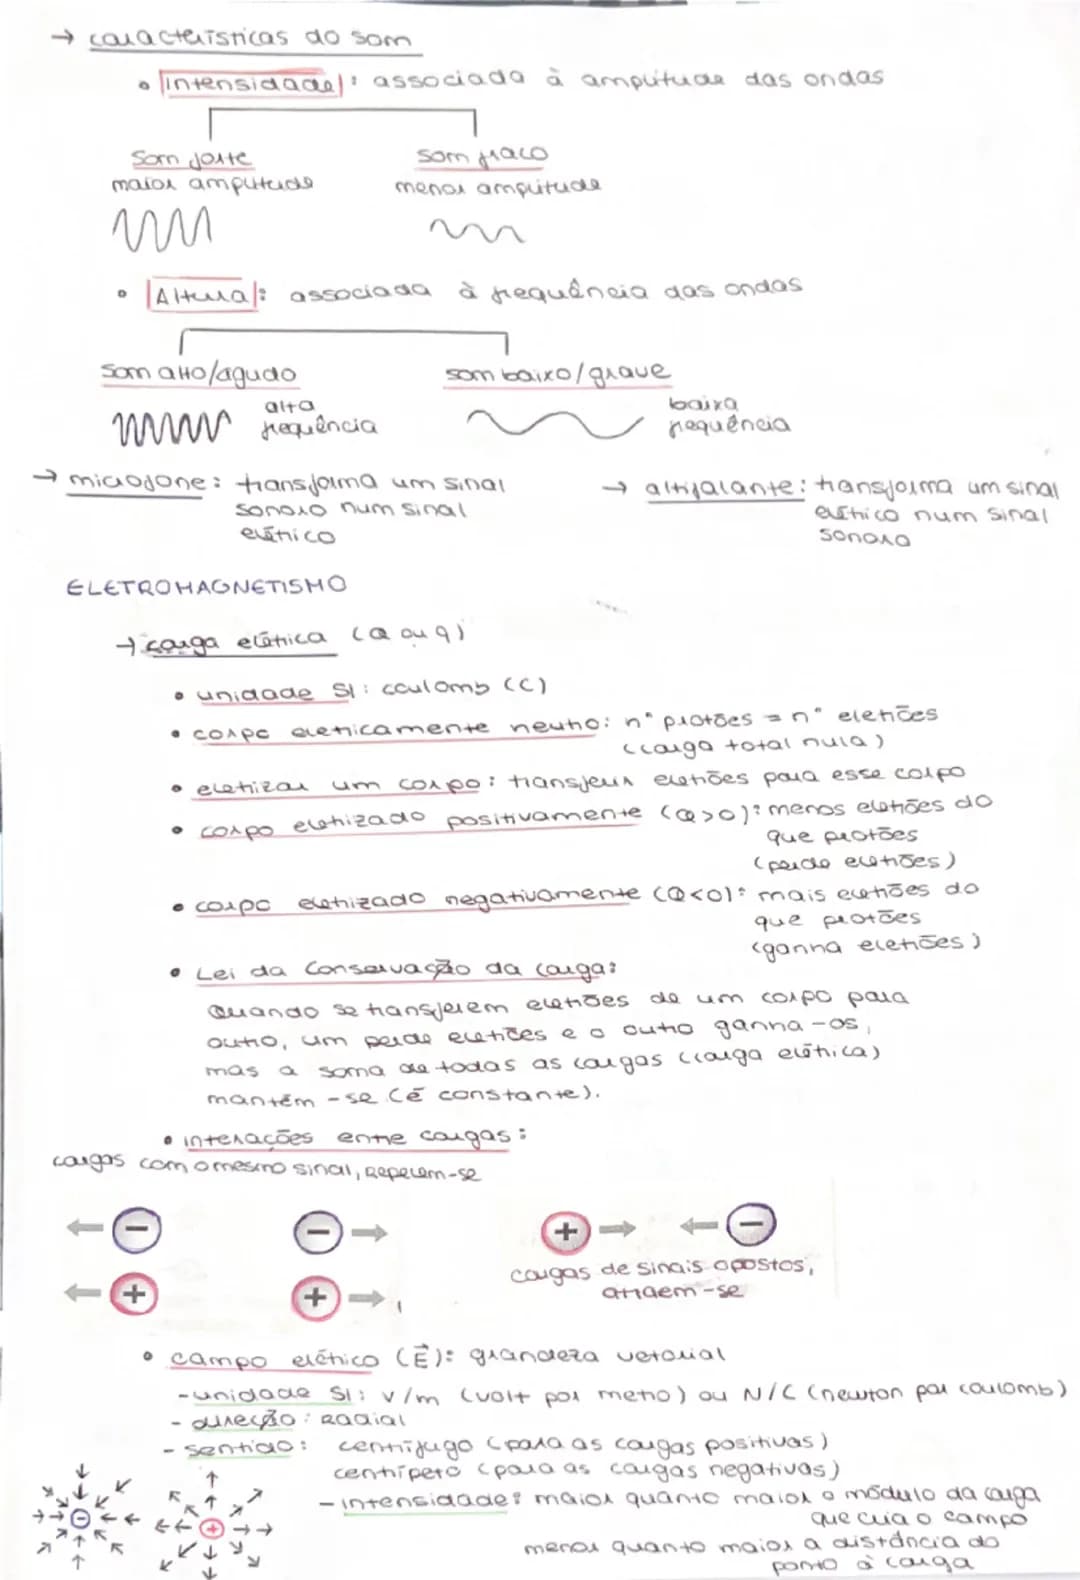 → características do som
• Intensidade: associada à amplitude das ondas
som forte
maior amplitude
som fraco
menor amplitude
• Altura: associada à frequência das ondas
som alto/agudo
alta
frequência
som baixo/grave
baixa
frequência
→ microfone: transforma um sinal
sonoro num sinal
elétrico
→ altifalante: transforma um sinal
elétrico num sinal
sonoro
ELETROMAGNETISMO
→ carga elétrica (Q ou q)
• unidade SI: coulomb (C)
• corpo eletricamente neutro: nº protões = nº eletrões
(carga total nula)
• eletrizar um corpo: transferir eletrões para esse corpo
• corpo eletrizado positivamente (Q>0): menos eletrões do
que protões
(perde eletrões)
• corpo eletrizado negativamente (Q<0): mais eletrões do
que protões
(ganha eletrões)
• Lei da Conservação da carga:
Quando se transferem eletrões de um corpo para
outro, um perde eletrões e o outro ganha-os,
mas a soma de todas as cargas (carga elétrica)
mantém-se (é constante).
• interações entre cargas:
cargas com o mesmo sinal, repelem-se
← − − → + → ← −
← + + →
cargas de sinais opostos,
atraem-se
• campo elétrico (E⃗): grandeza vetorial
- unidade SI: V/m (volt por metro) ou N/C (newton por coulomb)
- direção: radial
- sentido: centrífugo (para as cargas positivas)
centrípeto (para as cargas negativas)
- intensidade: maior quanto maior o módulo da carga
que cria o campo
menor quanto maior a distância do
ponto à carga